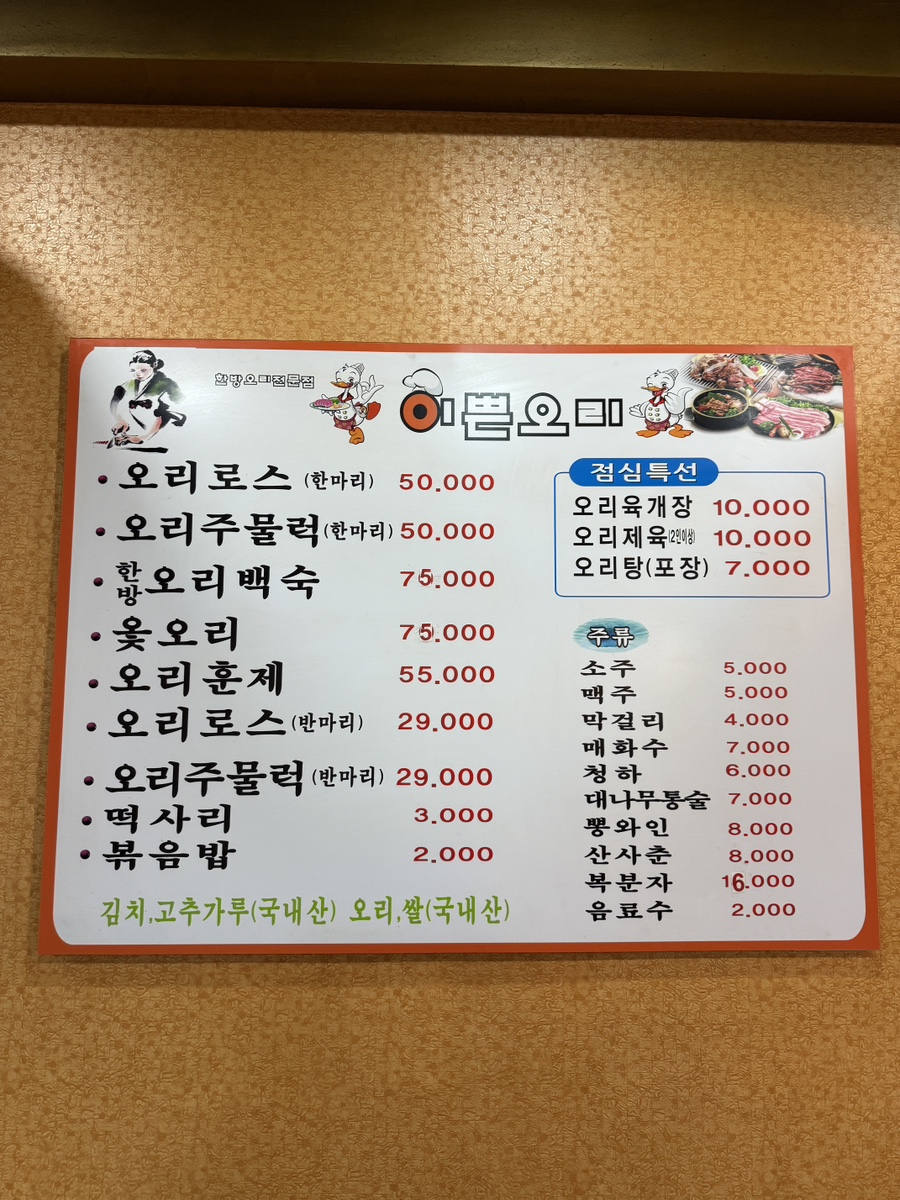 한방오리전문점
이쁜오리
오리로스 (한마리) 50.000
오리주물럭(한마리) 50.000
한방오리백숙 75.000
옻오리 75.000
오리훈제 55.000
오리로스(반마리) 29.000
오리주물럭(반마리) 29.000
떡사리 3.000
볶음밥 2.000
김치,고추가루(국내산) 오리,쌀(국내산)
점심특선
오리육개장 10.000
오리제육(2인이상) 10.000
오리탕(포장) 7.000
주류
소주 5.000
맥주 5.000
막걸리 4.000
매화수 7.000
청하 6.000
대나무통술 7.000
뽕와인 8.000
산사춘 8.000
복분자 16.000
음료수 2.000